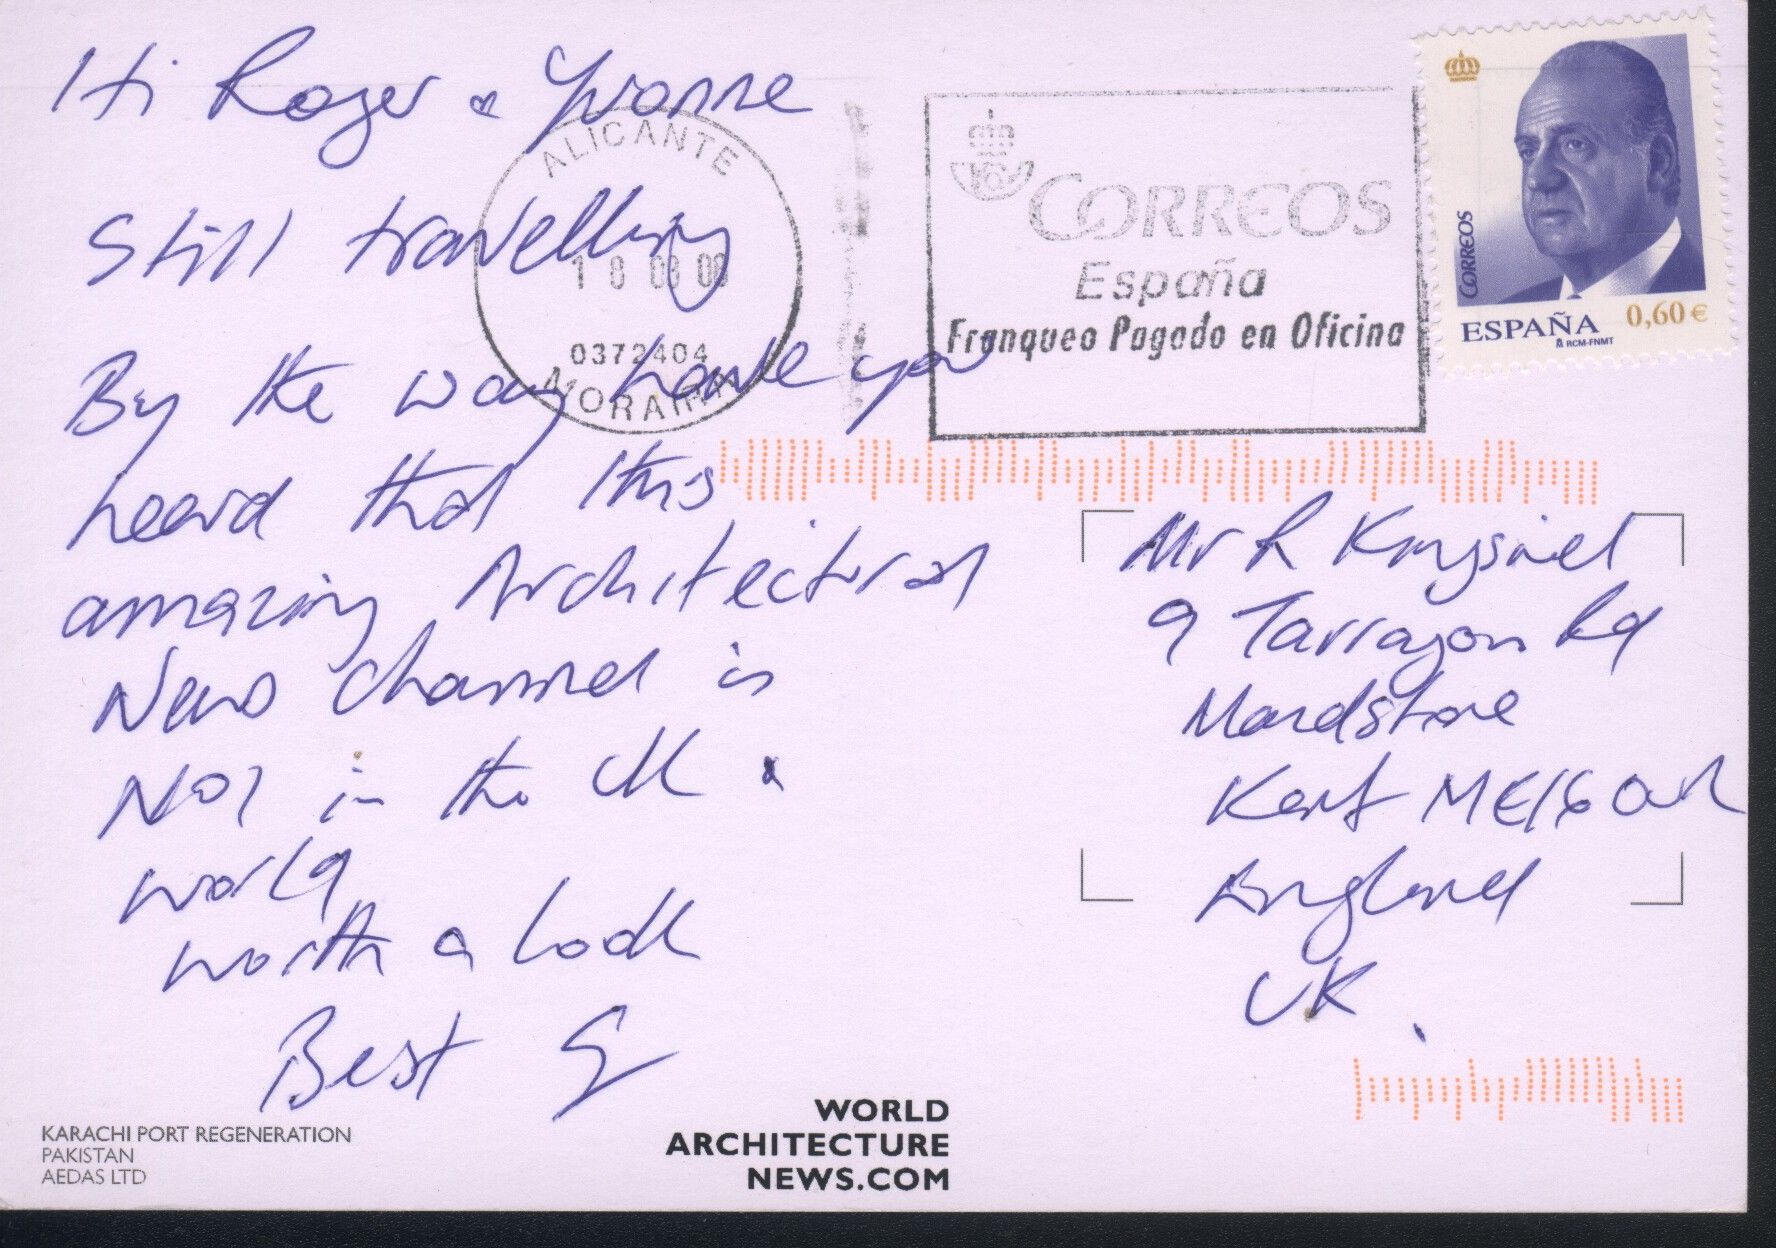 Hi Roger & Yvonne
Still travelling
By the way have you
heard that this
amazing Architectural
News channel is
No1 in the UK &
world
worth a look
Best
KARACHI PORT REGENERATION
PAKISTAN
AEDAS LTD
WORLD
ARCHITECTURE
NEWS.COM
ALICANTE
18 08 08
0372404
MORAIRA
CORREOS
España
Franqueo Pagado en Oficina
CORREOS
ESPAÑA 0,60 €
RCM-FNMT
Mr R
9 Tarragon Rd
Maidstone
Kent ME16
England
UK.